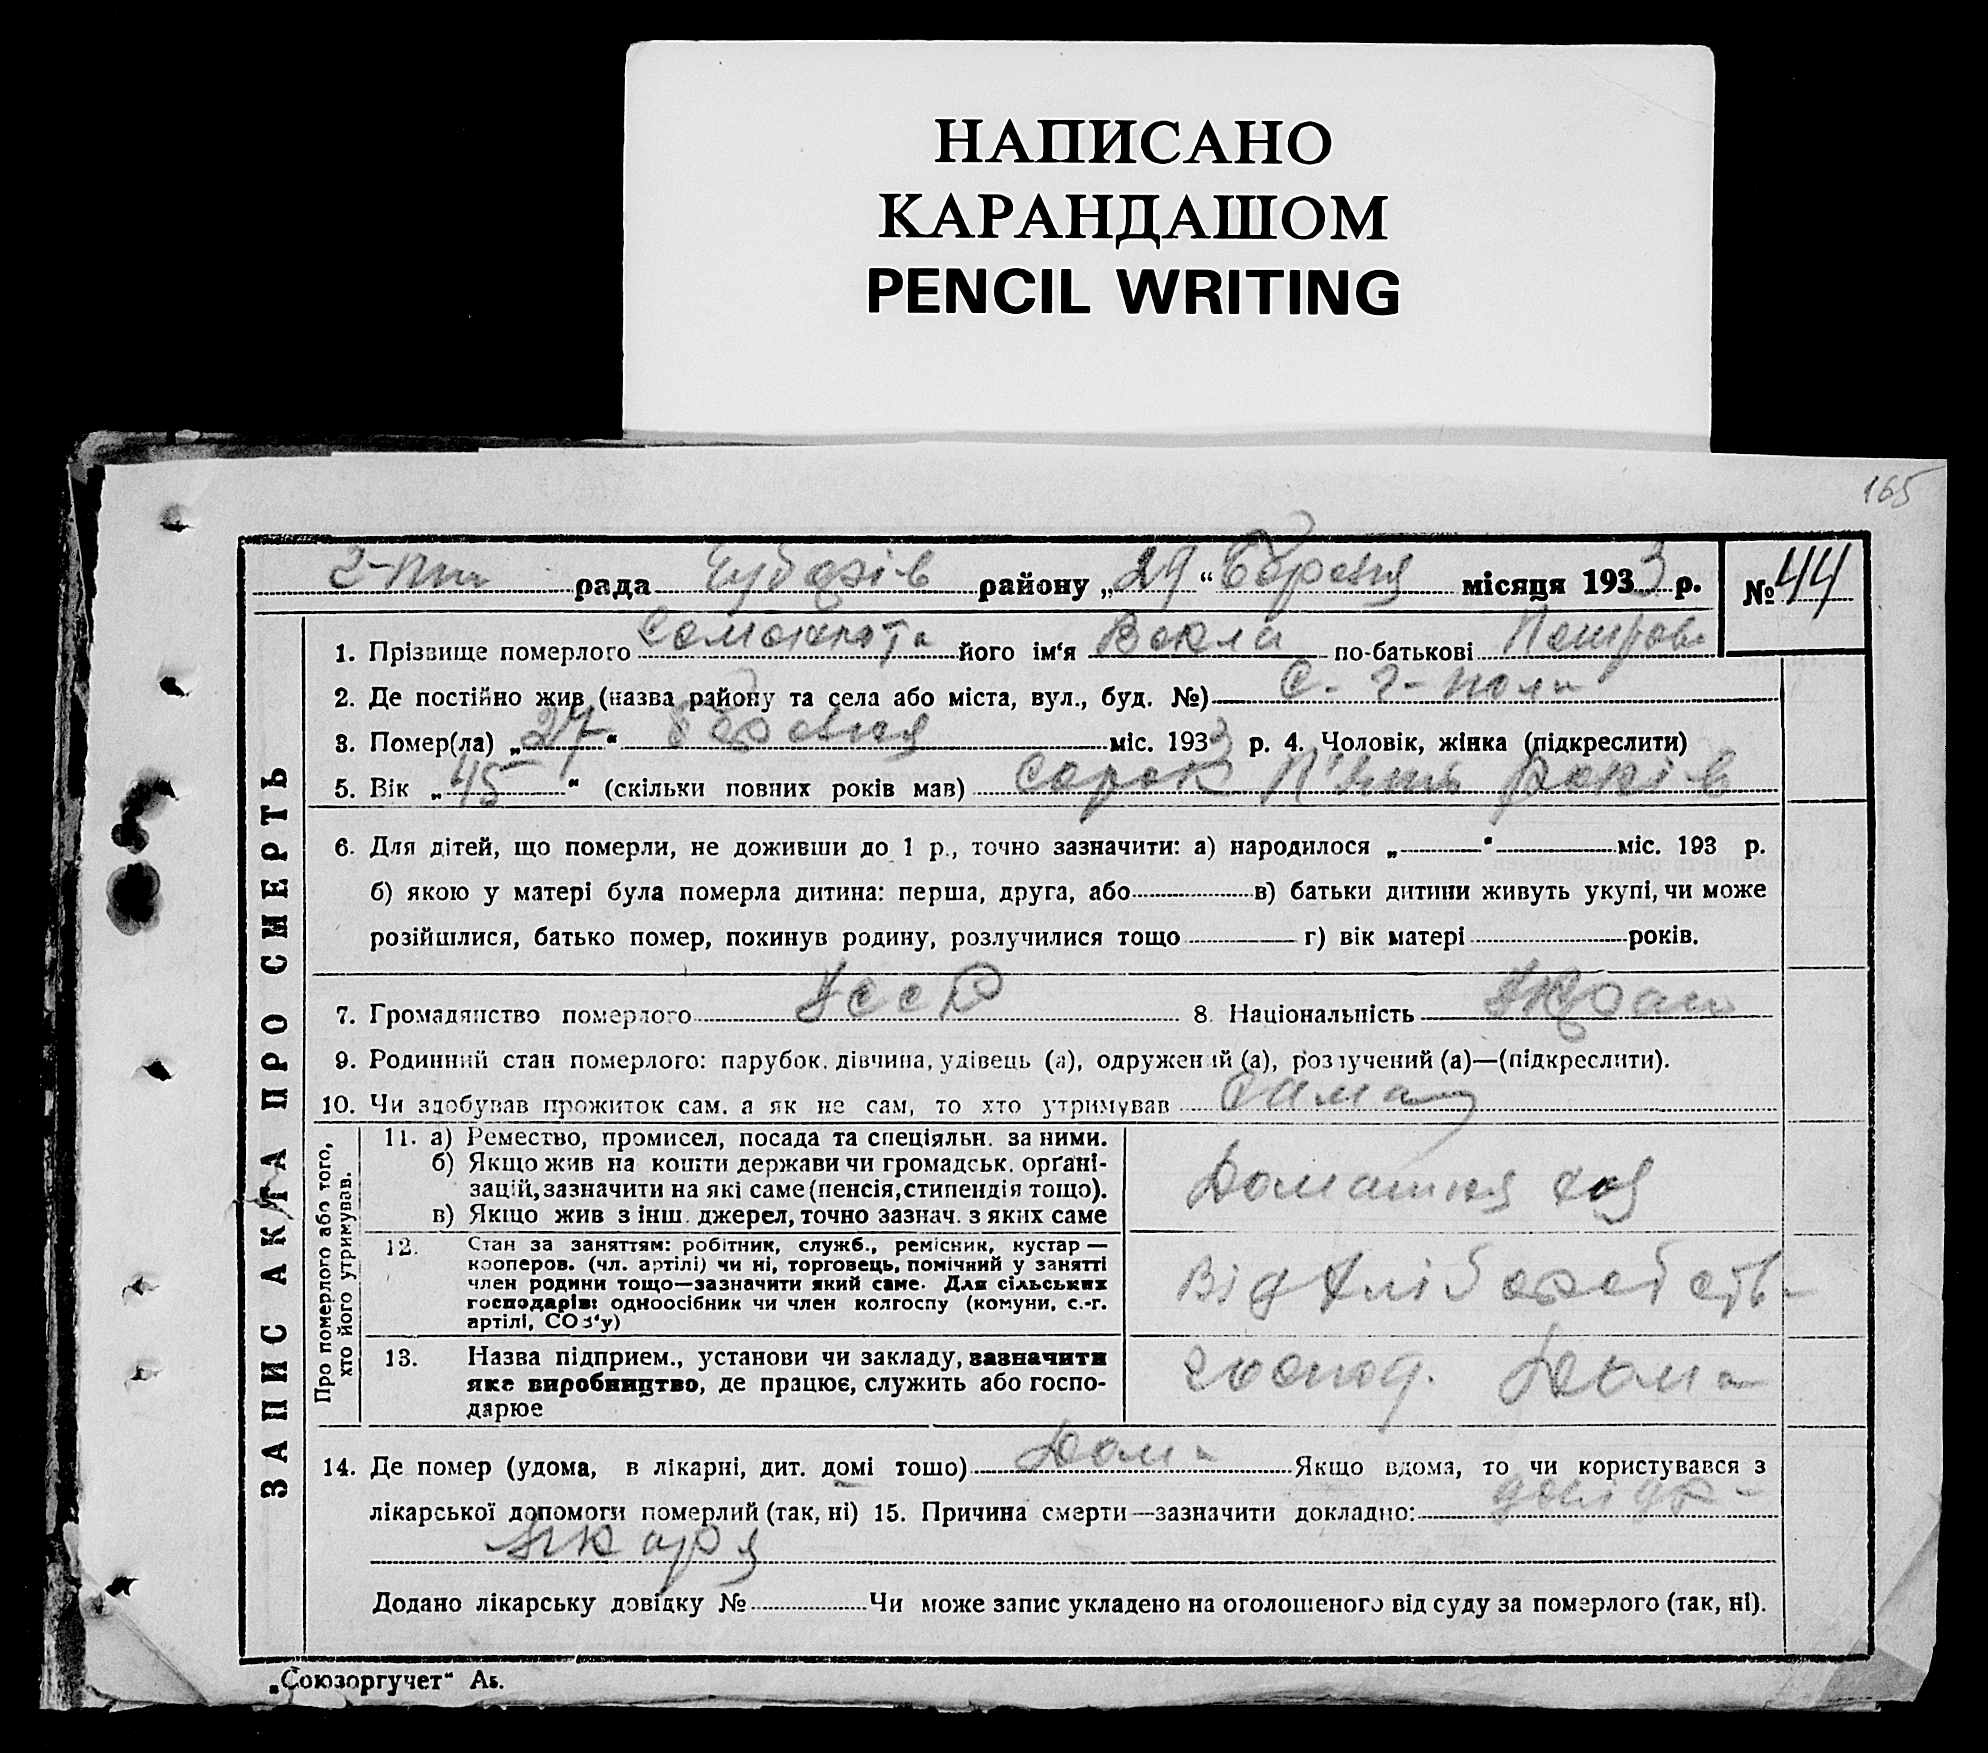 НАПИСАНО
КАРАНДАШОМ
PENCIL WRITING
165
рада Чубарів району „29“ Березня місяця 1933 р. № 44
ЗАПИС АКТА ПРО СМЕРТЬ
1. Прізвище померлого його ім‘я Векла по-батькові Петров
2. Де постійно жив (назва району та села або міста, вул., буд. №) С. Г-поля
3. Помер(ла) „27“ березня міс. 1933 р. 4. Чоловік, жінка (підкреслити)
5. Вік „45“ (скільки повних років мав) сорок п'ять років
6. Для дітей, що померли, не доживши до 1 р., точно зазначити: а) народилося „ “ міс. 193 р.
б) якою у матері була померла дитина: перша, друга, або в) батьки дитини живуть укупі, чи може
розійшлися, батько помер, покинув родину, розлучилися тощо г) вік матері років.
7. Громадянство померлого УССР 8. Національність Украин
9. Родинний стан померлого: парубок, дівчина, удівець (а), одружений (а), розлучений (а)—(підкреслити).
10. Чи здобував прожиток сам, а як не сам, то хто утримував сама
Про померлого або того,
хто його утримував.
11. а) Ремество, промисел, посада та спеціяльн. за ними.
б) Якщо жив на кошти держави чи громадськ. орґані-
зацій, зазначити на які саме (пенсія, стипендія тощо).
в) Якщо жив з інш. джерел, точно зазнач. з яких саме
Домашня хоз
12. Стан за заняттям: робітник, служб., ремісник, кустар —
кооперов. (чл. артілі) чи ні, торговець, помічний у занятті
член родини тощо—зазначити який саме. Для сільських
господарів: одноосібник чи член колгоспу (комуни, с.-г.
артілі, СОЗ‘у)
від
13. Назва підприєм., установи чи закладу, зазначити
яке виробництво, де працює, служить або госпо-
дарює
господ. Дома
14. Де помер (удома, в лікарні, дит. домі тошо) Дома Якщо вдома, то чи користувався з
лікарської допомоги померлий (так, ні) 15. Причина смерти—зазначити докладно:
Додано лікарську довідку № Чи може запис укладено на оголошеного від суду за померлого (так, ні).
„Союзоргучет“ Аб.